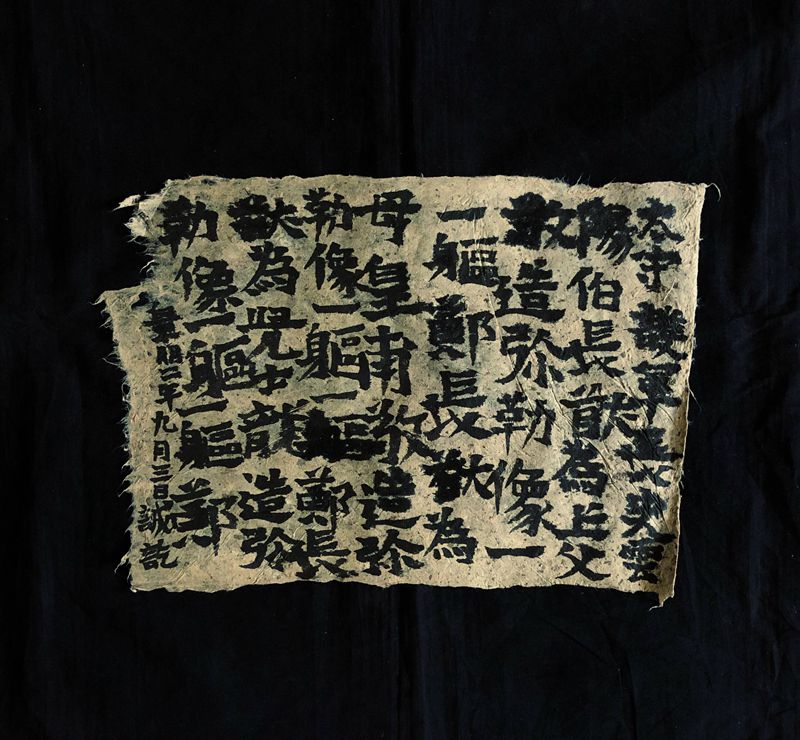 太守護軍長史雲
陽伯長猷為亡父
敬造弥勒像一
一軀鄭長猷為
母皇甫敬造弥
勒像一軀一軀鄭長
猷為兒士龍造弥
勒像一軀一軀鄭
景明二年九月三日誠訖